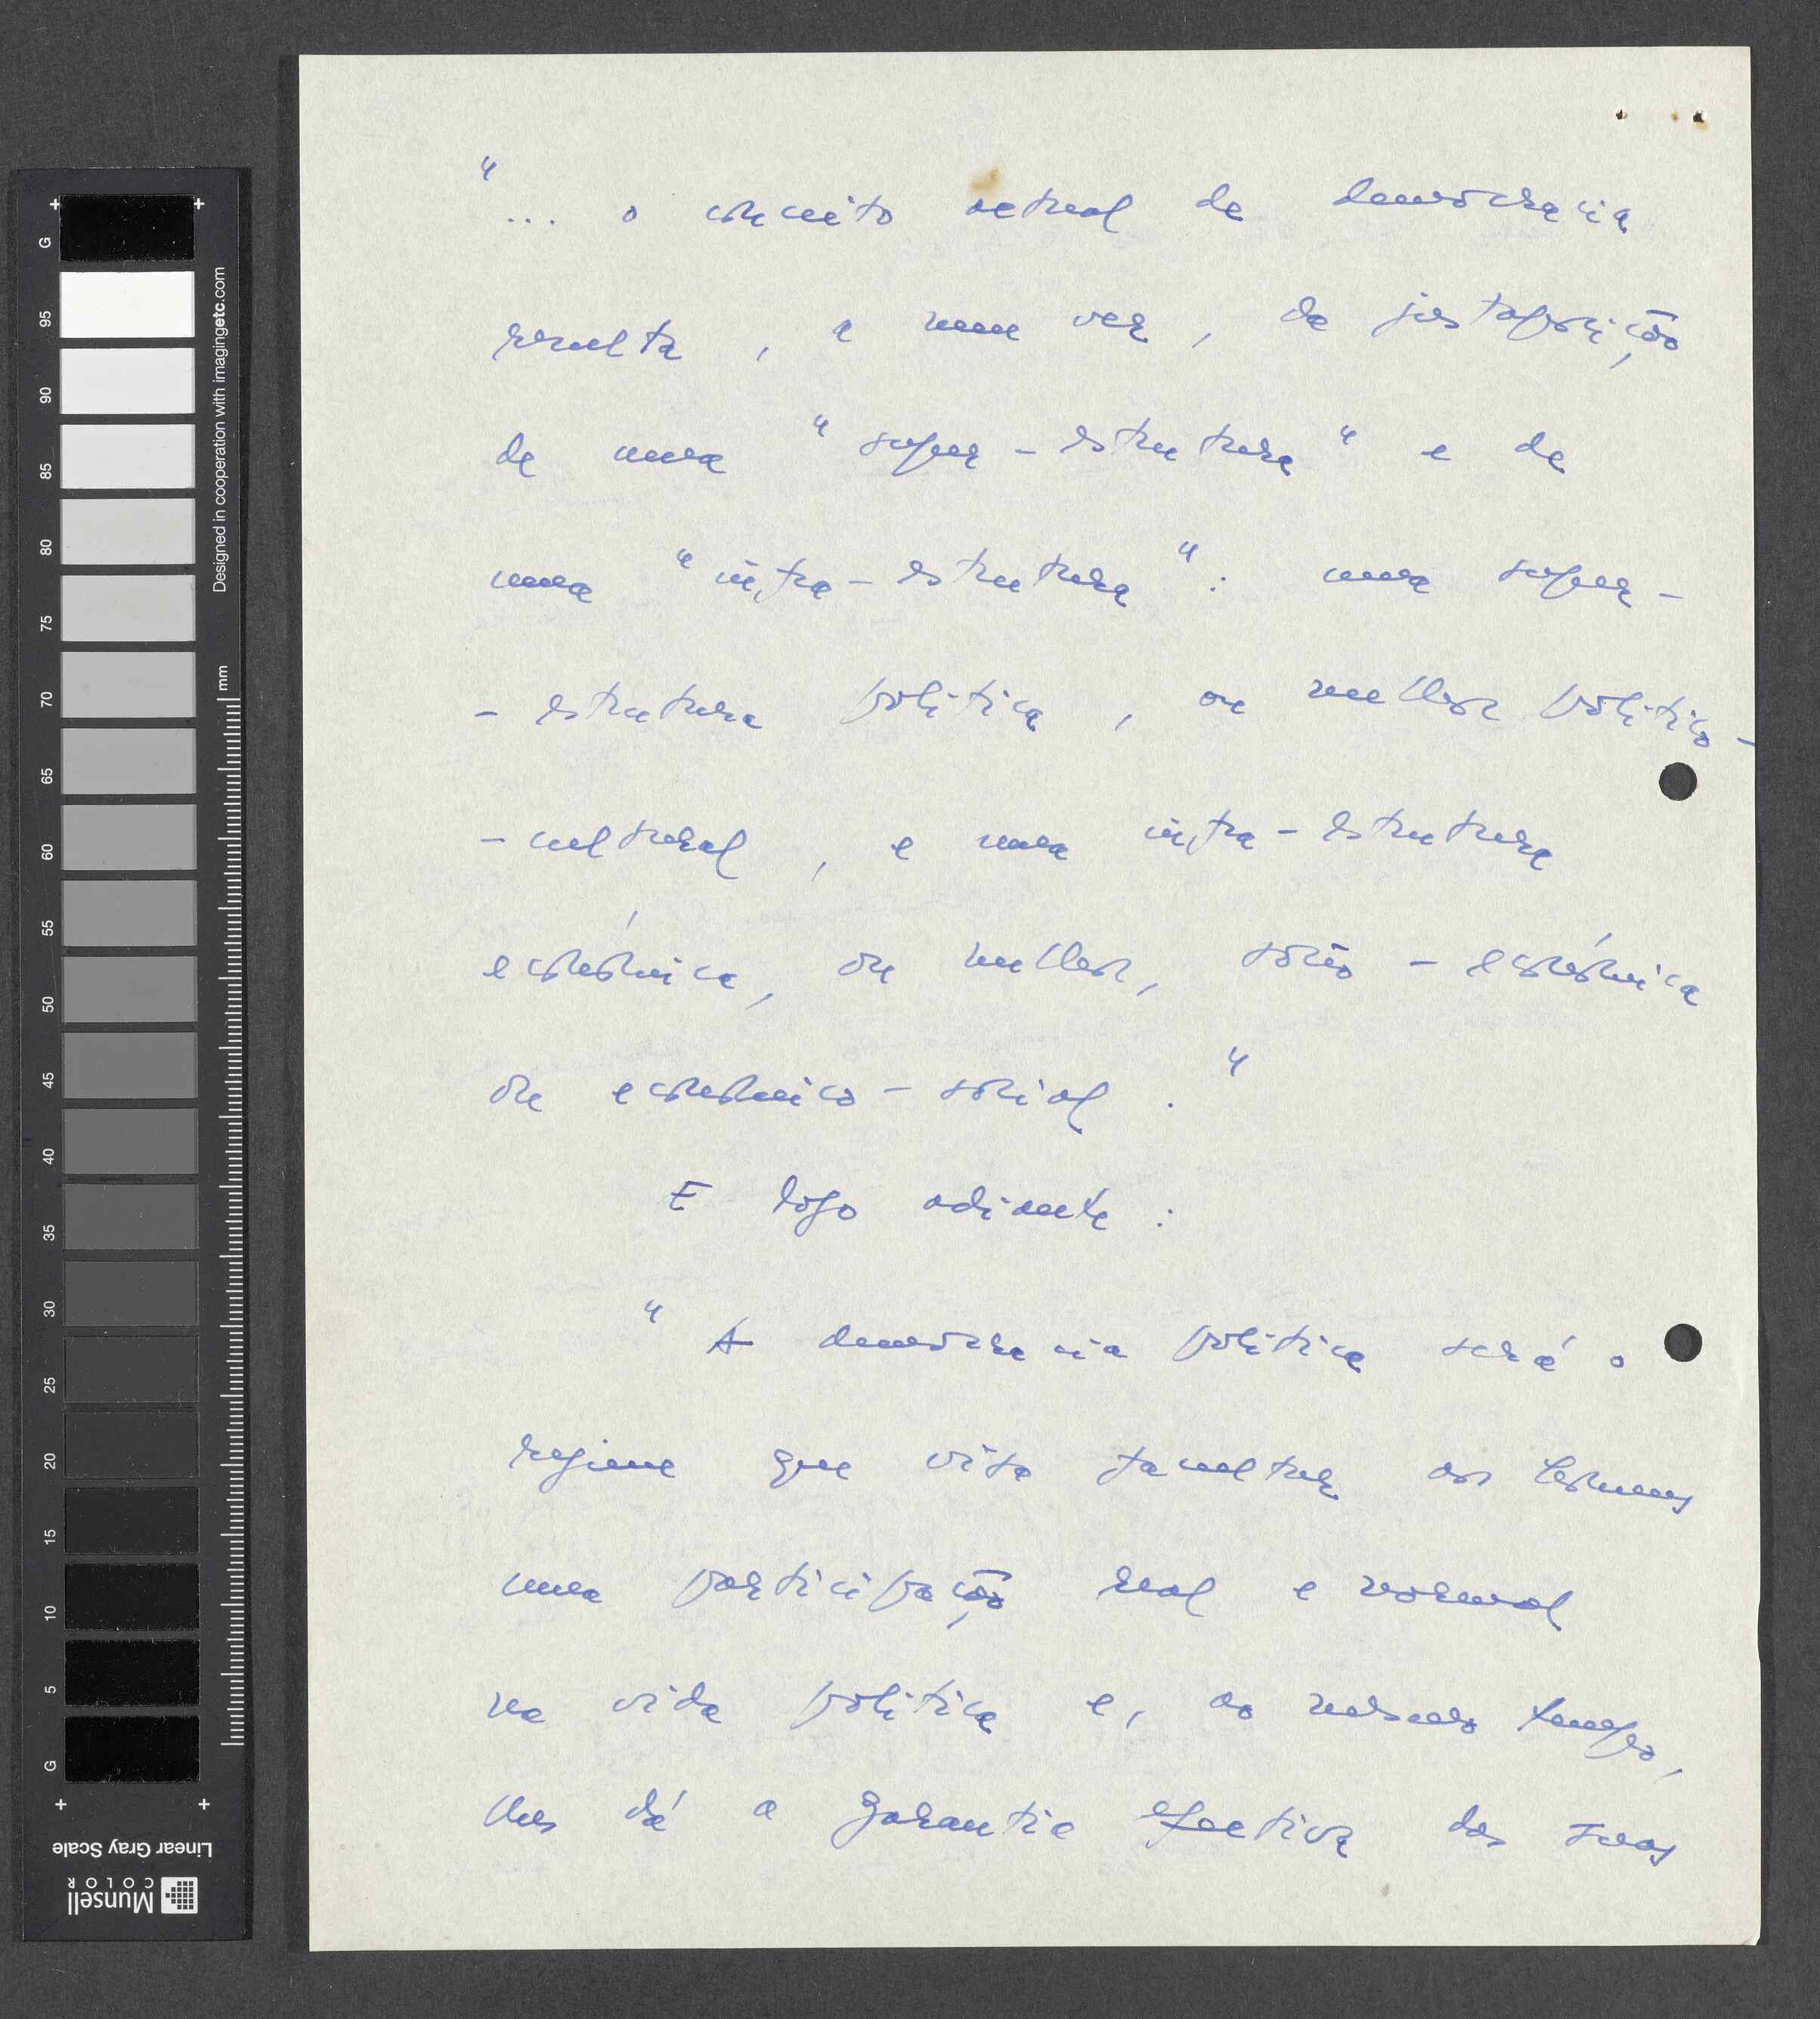 "... o conceito actual de democracia
resulta, a meu ver, da justaposição
de uma "super-estrutura" e de
uma "infra-estrutura": uma super-
-estrutura politica, ou melhor politico-
-cultural, e uma infra-estrutura
económica, ou melhor, socio-económica
ou economico-social."
E logo adiante:
"A democracia politica será o
regime que visa facultar aos homens
uma participação real e normal
na vida politica e, ao mesmo tempo,
lhes dá a garantia efectiva das suas
G
95
90
85
80
75
70
65
60
55
50
45
40
35
30
25
20
15
10
5
G
Designed in cooperation with imagingetc.com
mm
Linear Gray Scale
Munsell
COLOR